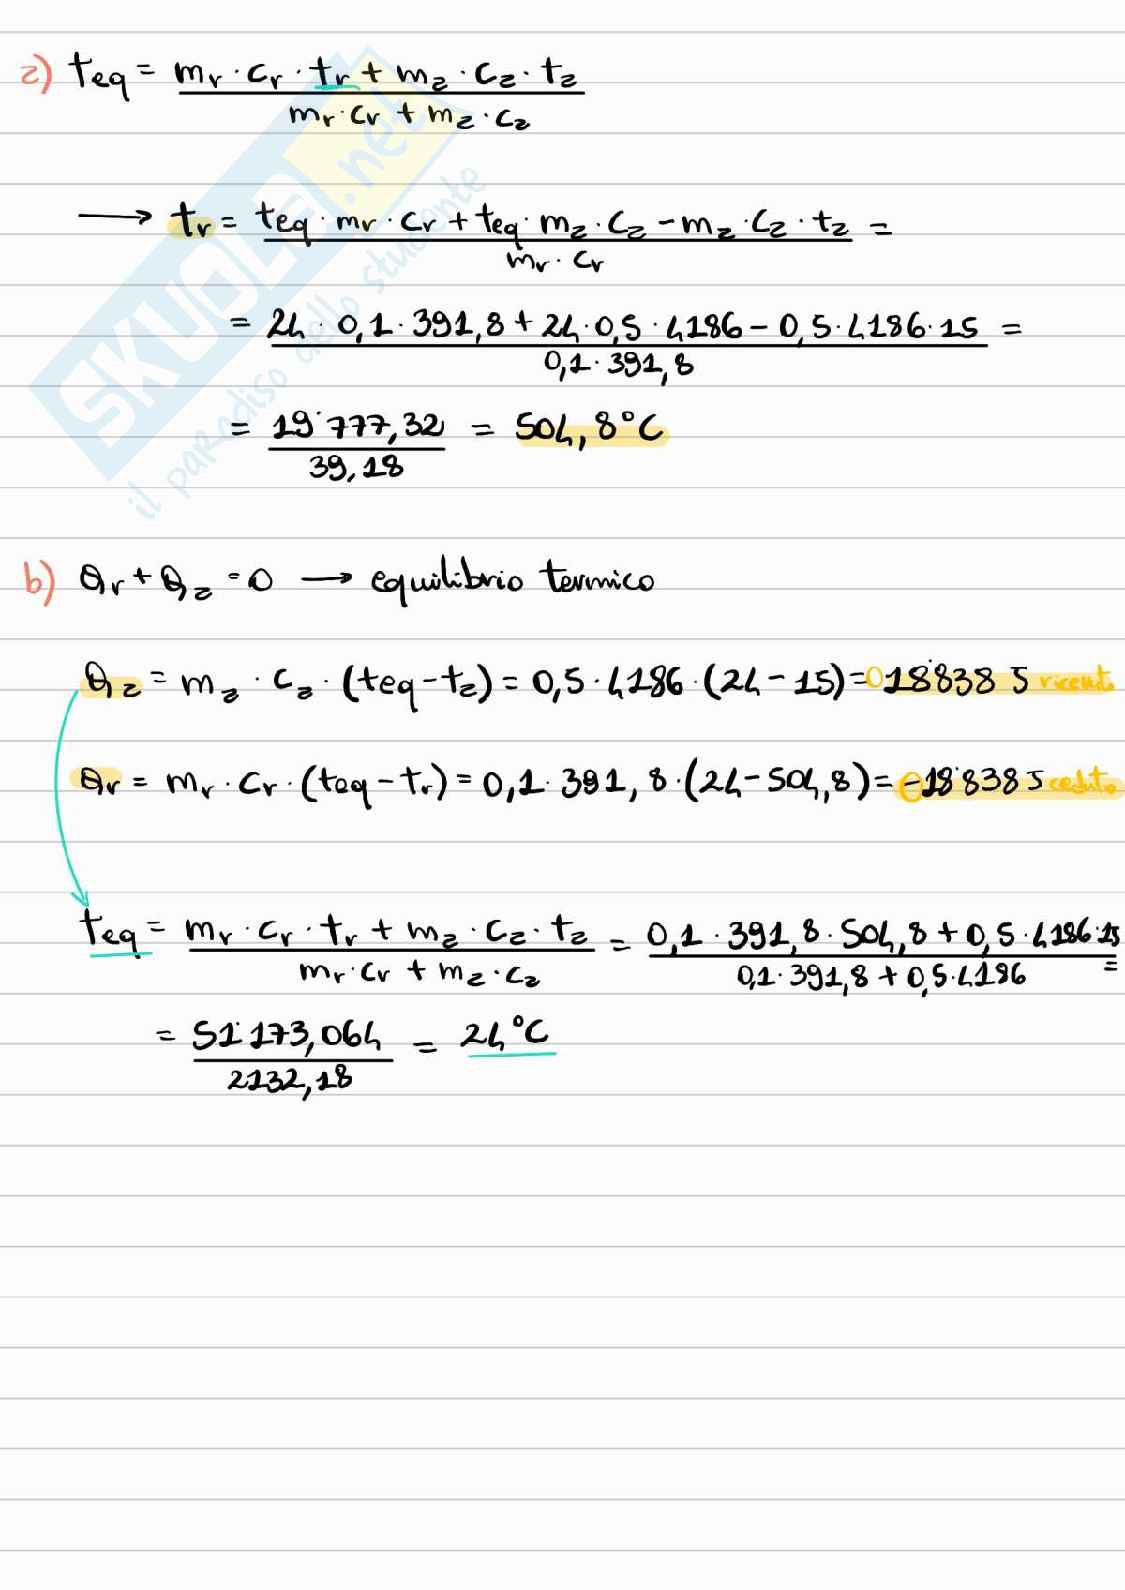 a) teq = mr · cr · tr + ma · ca · ta
mr · cr + ma · ca
→ tr = teq · mr · cr + teq · ma · ca - ma · ca · ta =
mr · cr
= 24 · 0,1 · 391,8 + 24 · 0,5 · 4186 - 0,5 · 4186 · 15 =
0,1 · 391,8
= 19˙777,32 = 504,8°C
39,18
b) Qr + Qa = 0 → equilibrio termico
Qa = ma · ca · (teq - ta) = 0,5 · 4186 · (24 - 15) = 18˙838 J ricevuto
Qr = mr · cr · (teq - tr) = 0,1 · 391,8 · (24 - 504,8) = -18˙838 J ceduto
teq = mr · cr · tr + ma · ca · ta = 0,1 · 391,8 · 504,8 + 0,5 · 4186 · 15 =
mr · cr + ma · ca 0,1 · 391,8 + 0,5 · 4186
= 51˙173,064 = 24°C
2132,18
SKUOLA.net
il paradiso dello studente